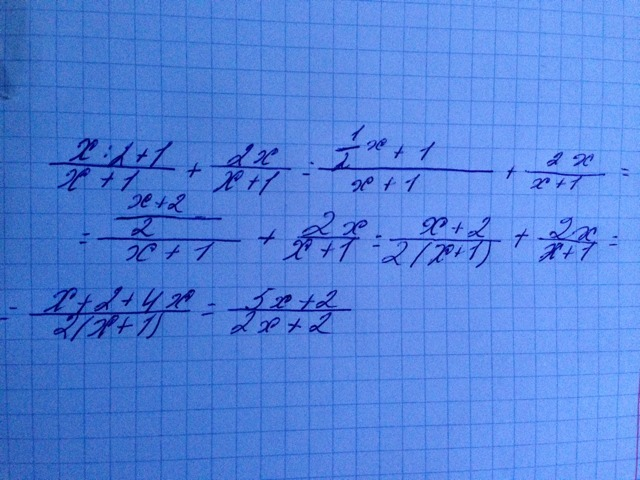 (x:2+1)/(x+1) + 2x/(x+1) = (1/2 x+1)/(x+1) + 2x/(x+1) =
= ((x+2)/2)/(x+1) + 2x/(x+1) = (x+2)/(2(x+1)) + 2x/(x+1) =
= (x+2+4x)/(2(x+1)) = (5x+2)/(2x+2)